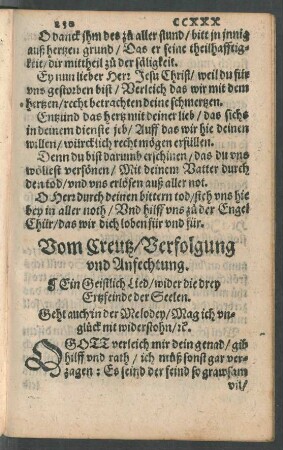 230 CCXXX
O danck jhm des zů aller stund / bitt in jnnig
auß hertzen grund / Das er seine theilhafftig-
keit / dir mittheil zů der säligkeit.
Ey nun lieber Herr Jesu Christ / weil du für
vns gestorben bist / Verleich das wir mit dem
hertzen / recht betrachten deine schmertzen.
Entzünd das hertz mit deiner lieb / das sichs
in deinem dienste jeb / Auff das wir hie deinen
willen / würcklich recht mögen erfüllen.
Denn du bist darumb erschinen / das du vns
wöllest versönen / Mit deinem Vatter durch
den tod / vnd vns erlösen auß aller not.
O Herr durch deinen bittern tod / steh vns hie
bey in aller noth / Vnd hilff vns zů der Engel
Chür / das wir dich loben für vnd für.
Vom Creutz / Verfolgung
vnd Anfechtung.
¶ Ein Geistlich Lied / wider die drey
Ertzfeinde der Seelen.
Geht auch in der Melodey / Mag ich vn-
glück nit widerstohn / ꝛc.
O GOTT verleich mir dein genad / gib
hilff vnd rath / ich můß sonst gar ver-
zagen : Es seind der feind so grawsam
vil /